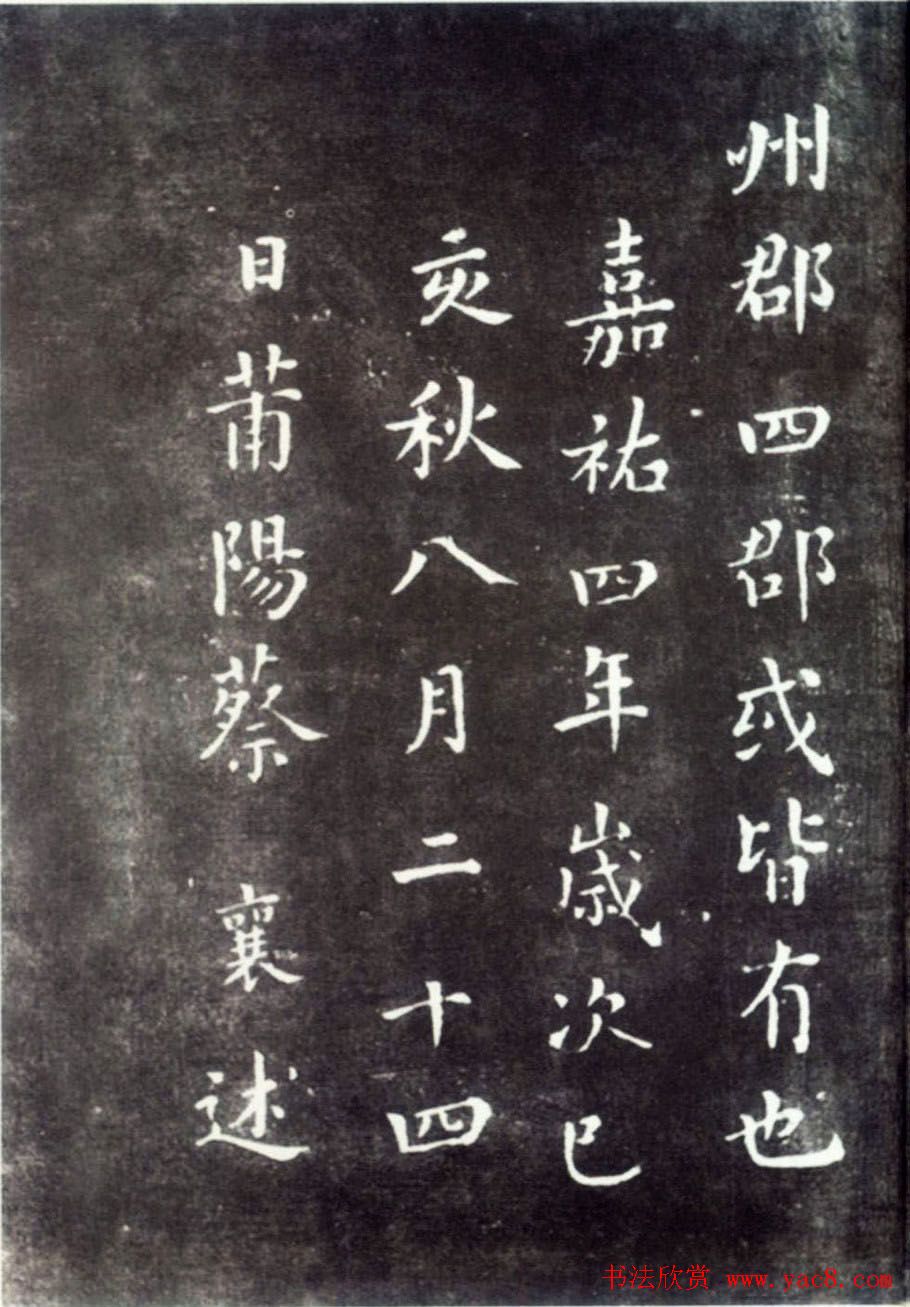 州郡四郡或皆有也
嘉祐四年歲次己
亥秋八月二十四
日莆陽蔡襄述
书法欣赏 www.yac8.com